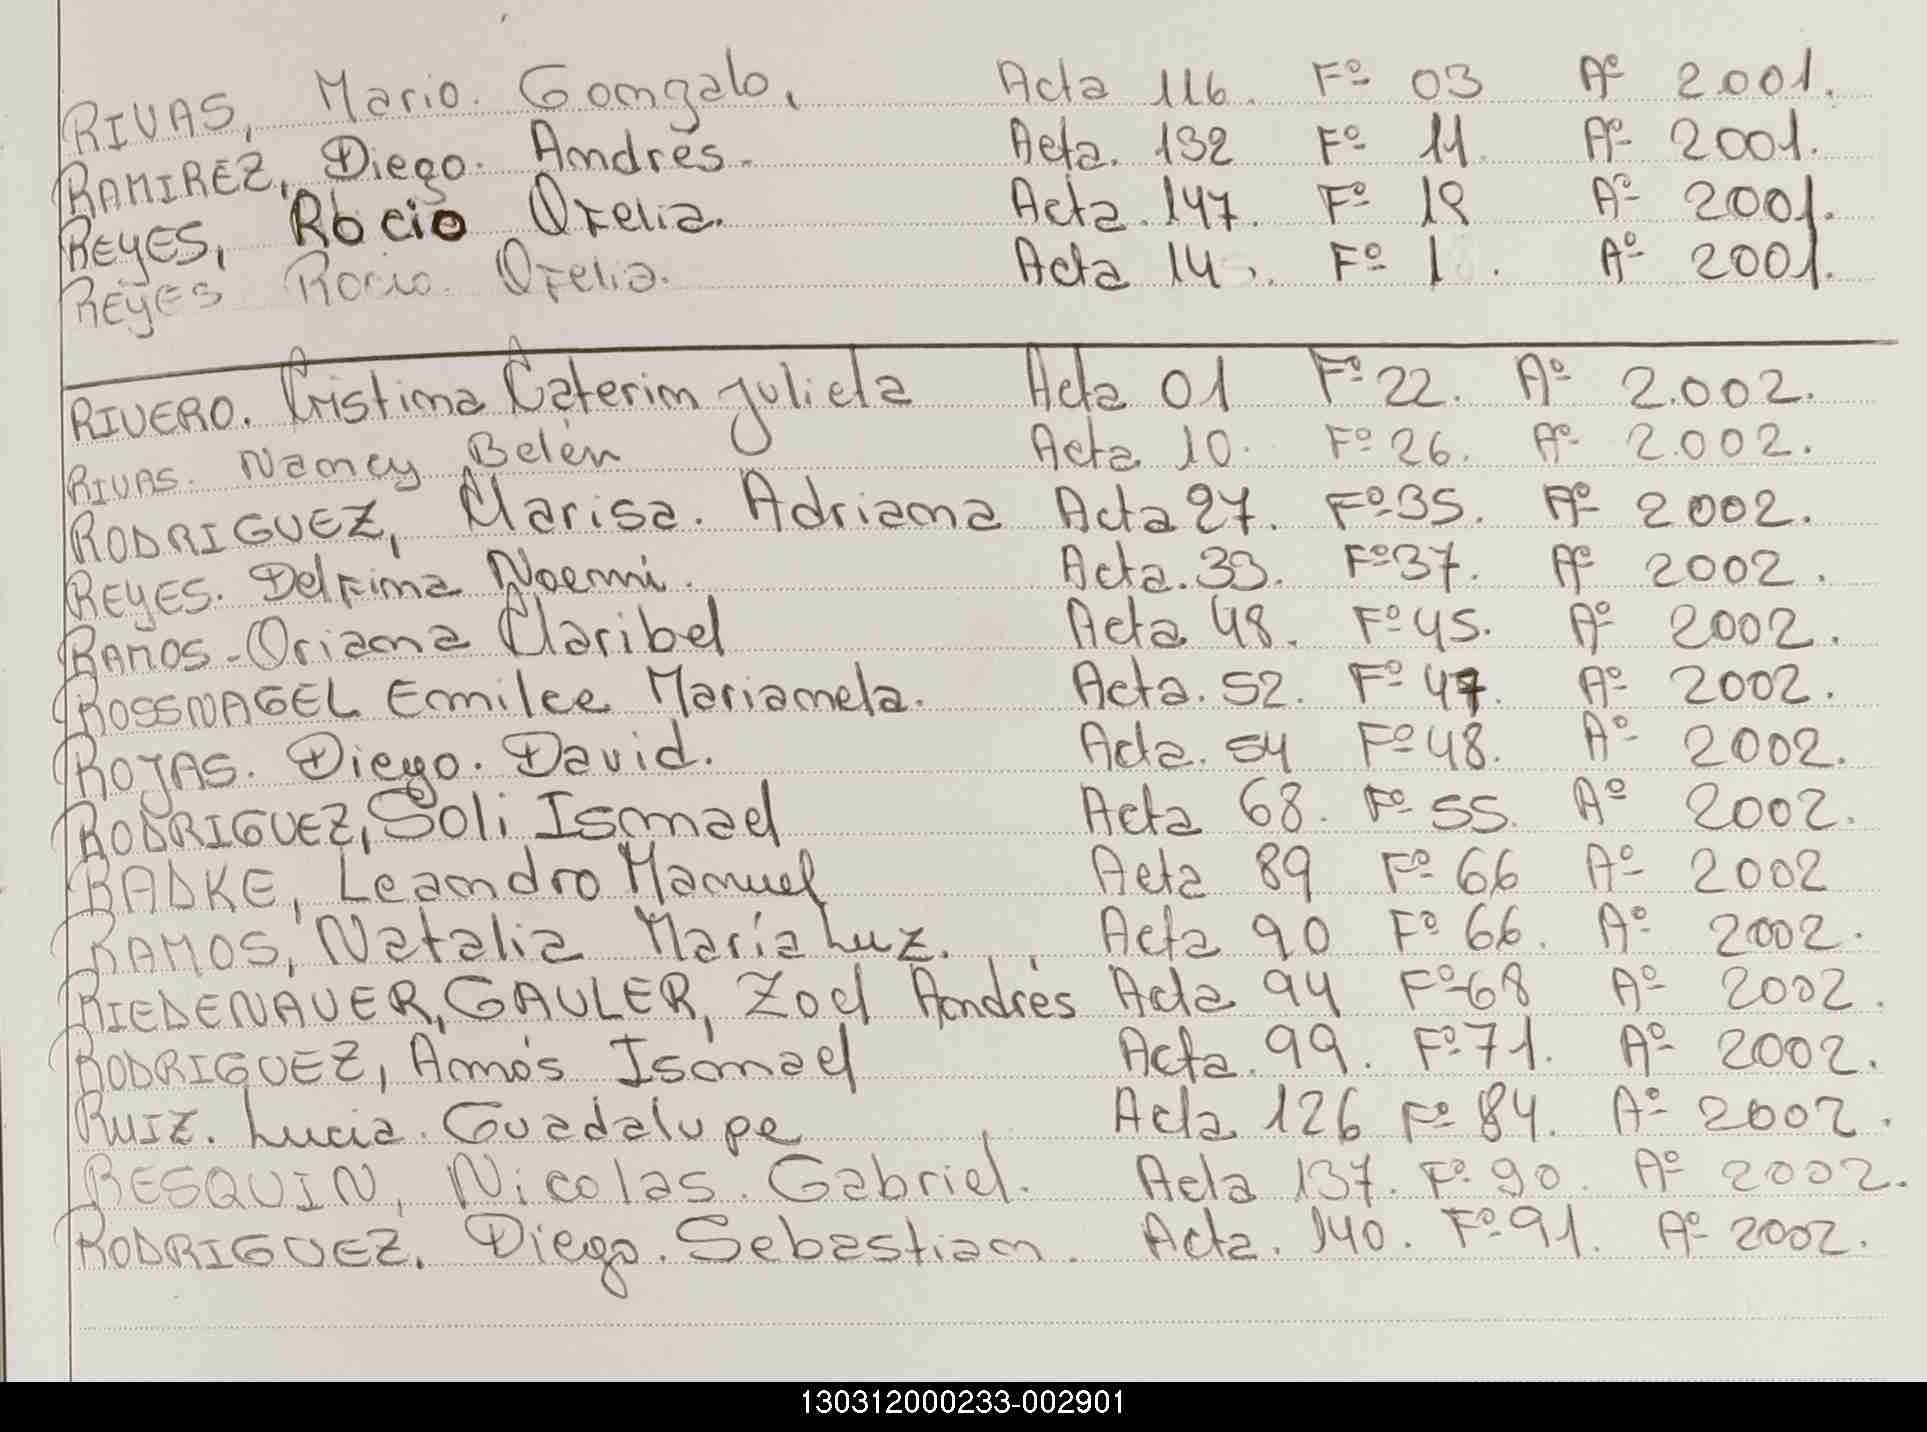 RIVAS, Mario. Gonzalo. Acta 116. Fº 03 Aº 2001.
RAMIREZ, Diego. Andrés. Acta. 132 Fº 11. Aº 2001.
REYES, Rocio Ofelia. Acta. 147. Fº 19 Aº 2001.
REYES Rocio. Ofelia. Acta 14 . Fº 1 . Aº 2001.
RIVERO. Cristina Caterin Julieta Acta 01 Fº 22. Aº 2.002.
RIVAS. Nancy Belén Acta 10. Fº 26. Aº 2.002.
RODRIGUEZ, Marisa. Adriana Acta 27. Fº 35. Aº 2002.
REYES. Delfina Noemi. Acta. 33. Fº 37. Aº 2002.
RAMOS - Oriana Claribel Acta 48. Fº 45. Aº 2002.
ROSSNAGEL Emilce Marianela. Acta. 52. Fº 47. Aº 2002.
ROJAS. Diego. David. Acta. 54 Fº 48. Aº 2002.
RODRIGUEZ, Soli Ismael Acta 68. Fº 55. Aº 2002.
RADKE, Leandro Manuel Acta 89 Fº 66 Aº 2002
RAMOS, Natalia María Luz. Acta 90 Fº 66. Aº 2002.
RIEDENAUER, GAULER, Zoel Andrés Acta 94 Fº 68 Aº 2002.
RODRIGUEZ, Amós Ismael Acta. 99. Fº 71. Aº 2002.
RUIZ. Lucia. Guadalupe Acta 126 Fº 84. Aº 2002.
RESQUIN, Nicolas. Gabriel. Acta 137. Fº 90. Aº 2002.
RODRIGUEZ. Diego. Sebastian. Acta. 140. Fº 91. Aº 2002.
130312000233-002901